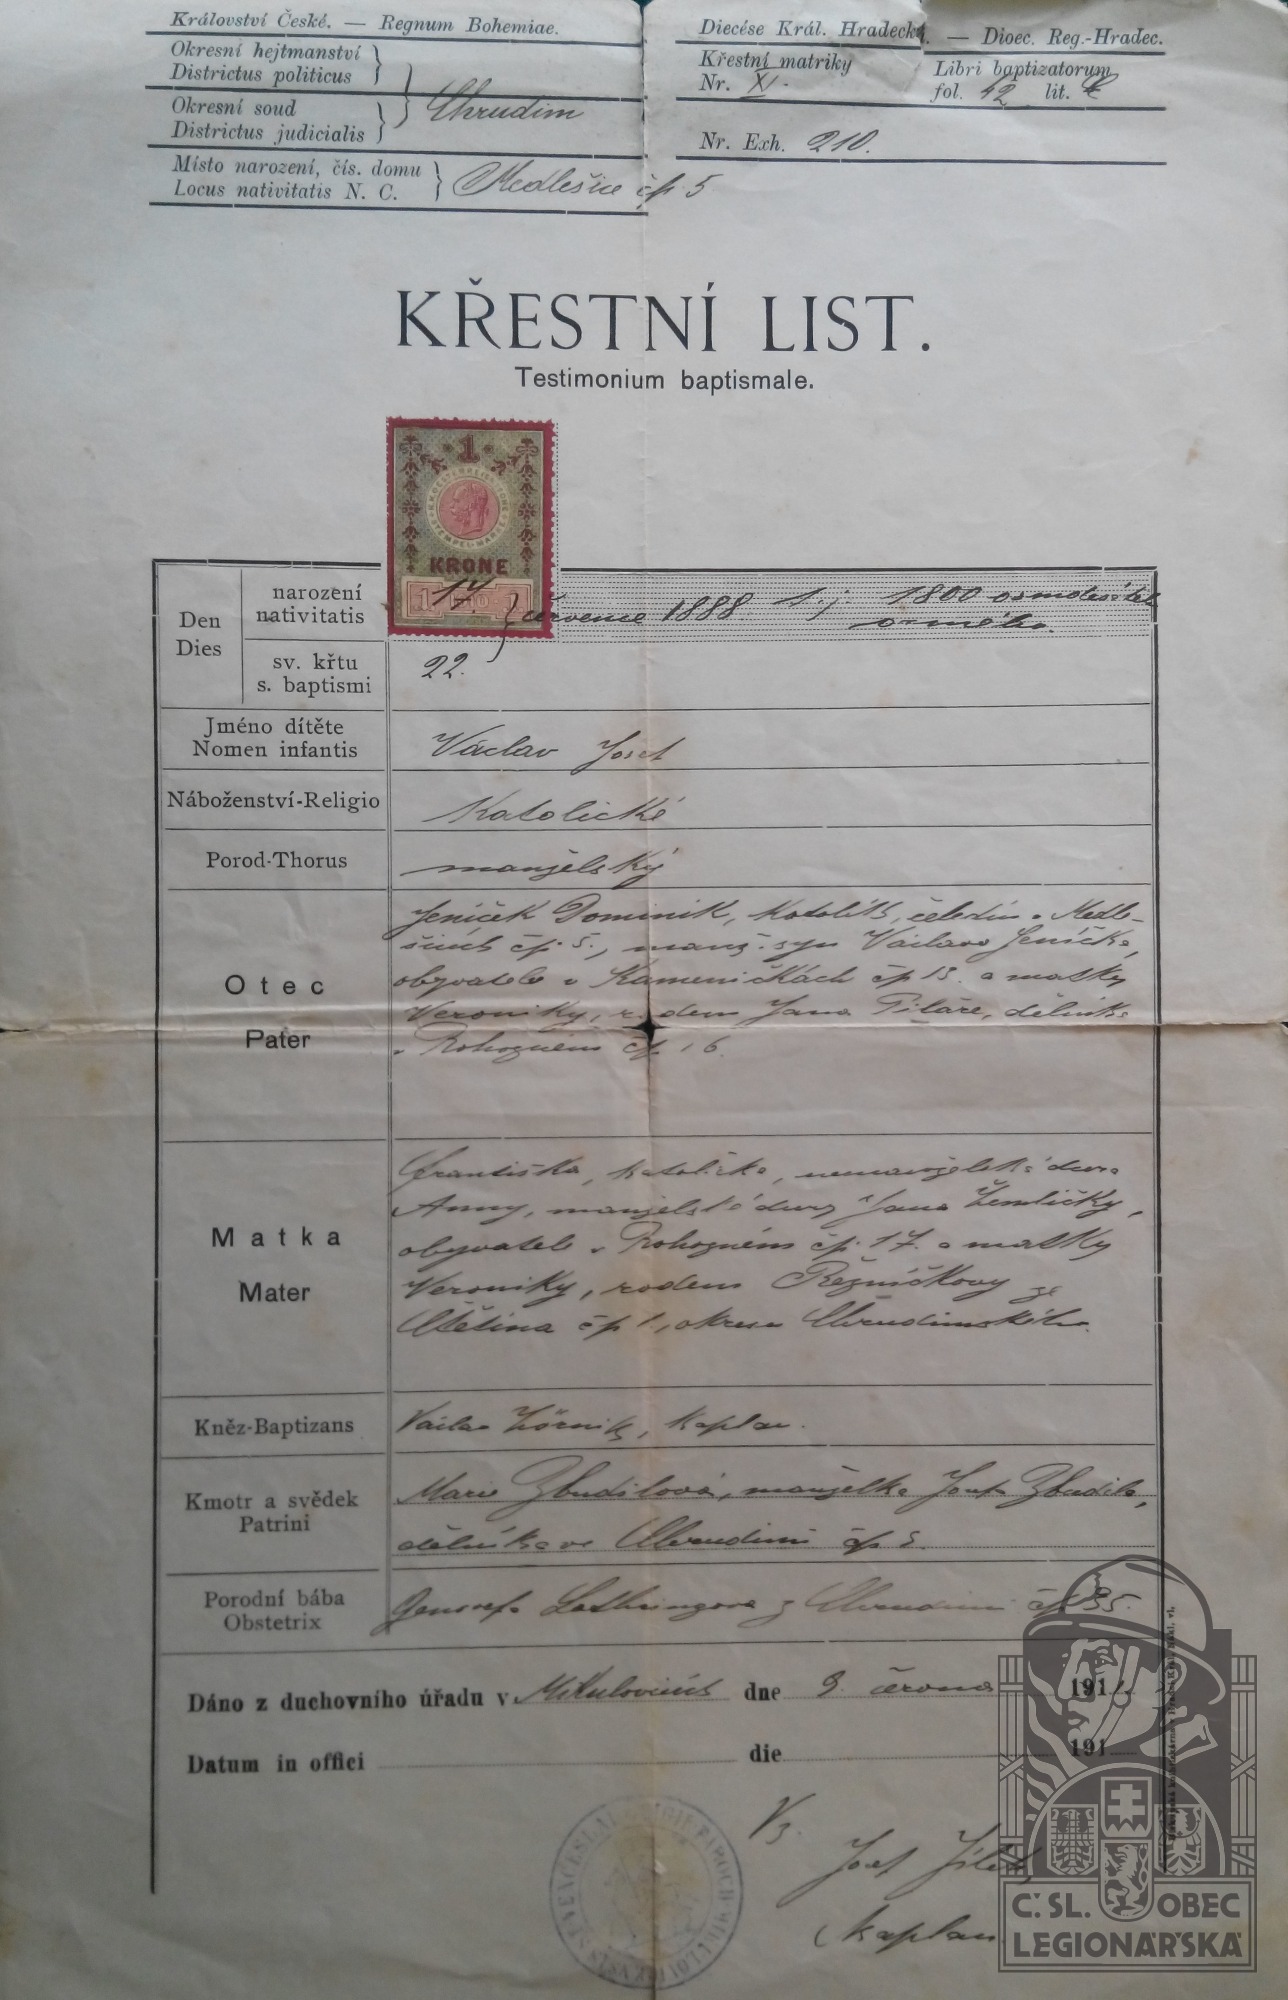 Království České. — Regnum Bohemiae.
Okresní hejtmanství
Districtus politicus
Okresní soud
Districtus judicialis
Chrudim
Místo narození, čís. domu
Locus nativitatis N. C.
Medlešice čp. 5
Diecése Král. Hradecká. — Dioec. Reg.-Hradec.
Křestní matriky
Nr. XI.
Libri baptizatorum
fol. 42 lit.
Nr. Exh. 210.
KŘESTNÍ LIST.
Testimonium baptismale.
1
KRONE
Den
Dies
narození
nativitatis
17. července 1888 t. j. 1800 osmdesátého
osmého.
sv. křtu
s. baptismi
22.
Jméno dítěte
Nomen infantis
Václav Josef
Náboženství-Religio
Katolické
Porod-Thorus
manželský
Otec
Pater
Jeníček Dominik, katolík, čeledín v Medle-
šicích čp. 5., manž. syn Václava Jeníčka,
obyvatele v Kameničkách čp 13. a matky
Veroniky, rodem Jana Piláře, dělníka
v Rohozném čp. 16.
Matka
Mater
Františka, katolička, nemanželská dcera
Anny, manželské dcery Jana Žemličky,
obyvatele v Rohozném čp. 17. a matky
Veroniky, rodem Řezníčkovy ze
Včelína čp 1, okresu Chrudimského.
Kněz-Baptizans
Václav kaplan.
Kmotr a svědek
Patrini
Marie Zbudilová, manželka Josefa Zbudila,
dělníka ve Chrudimi čp 5.
Porodní bába
Obstetrix
Genovefa z Chrudimi čp. 35.
Dáno z duchovního úřadu v Mikulovicích dne 9. června 191
Datum in offici die 191
Vz.
Josef
kaplan.
Č. SL. OBEC
LEGIONÁŘSKÁ